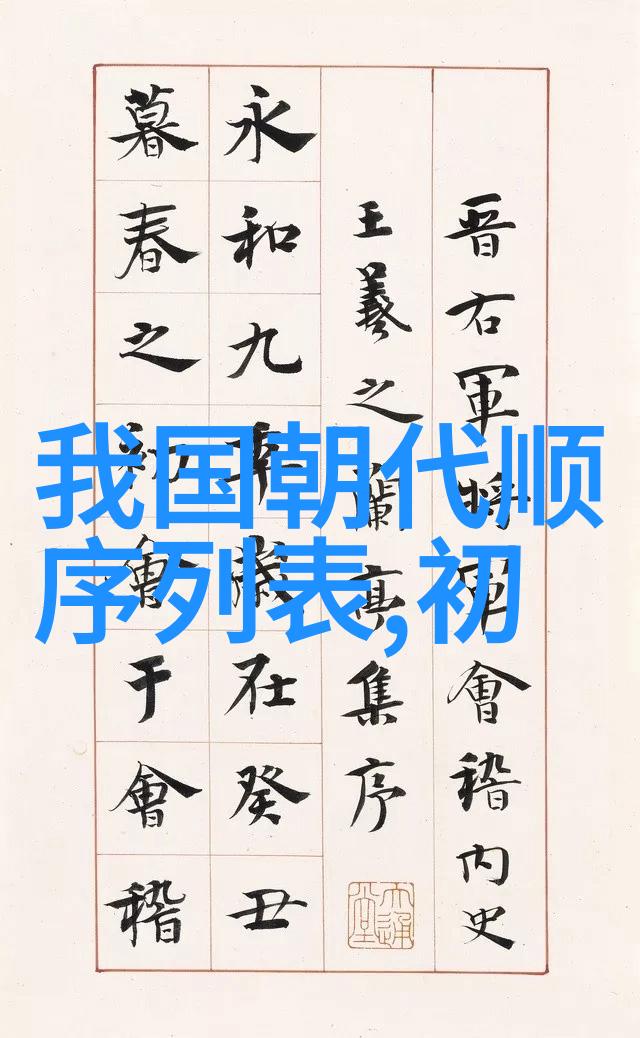 晋右軍將軍會稽内史
王羲之蘭亭集序
永和九年歲在癸丑
暮春之初會于會稽
我国朝代顺
序列表,初